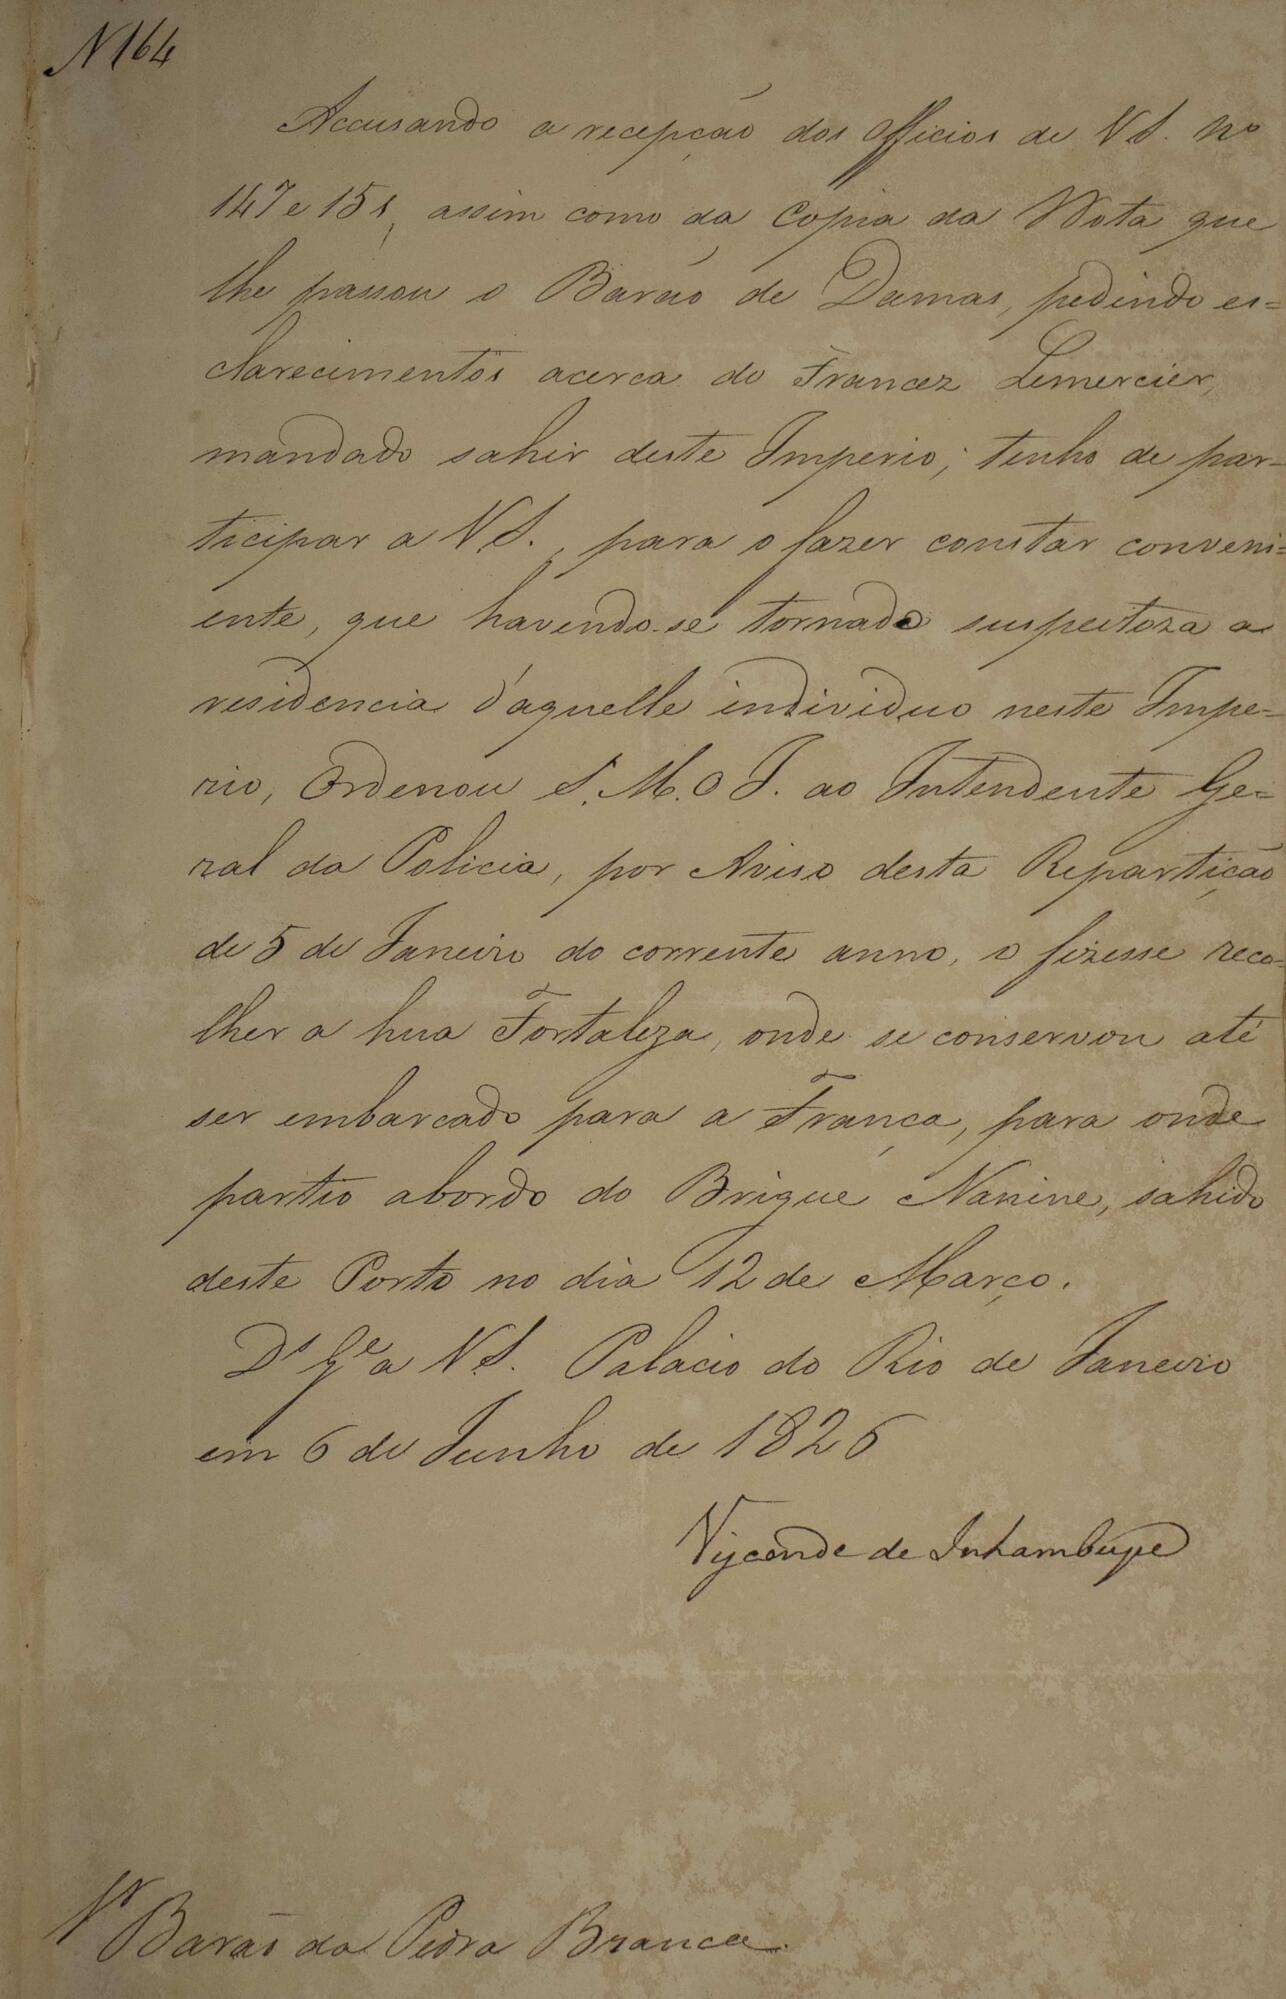 N 164
Accusando a recepção dos Officios de V S. Nº
147 e 151, assim como da Copia da Nota que
lhe passou o Barão de Damas, pedindo es=
clarecimentos acerca do Francez Lemercier,
mandado sahir deste Imperio; tenho de par-
ticipar a V S., para o fazer constar conveni=
ente, que havendo-se tornado suspeitoza a
residencia d'aquelle individuo neste Impe-
rio, Ordenou S. M. O I. ao Intendente Ge-
ral da Policia, por Aviso desta Repartição
de 5 de Janeiro do corrente anno, o fizesse reco-
lher a hua Fortaleza, onde se conservou até
ser embarcado para a França, para onde
partio abordo do Brigue Nanine, sahido
deste Porto no dia 12 de Março.
Ds Ge a V S. Palacio do Rio de Janeiro
em 6 de Junho de 1826
Visconde de Inhambupe
Sr Barão da Pedra Branca.